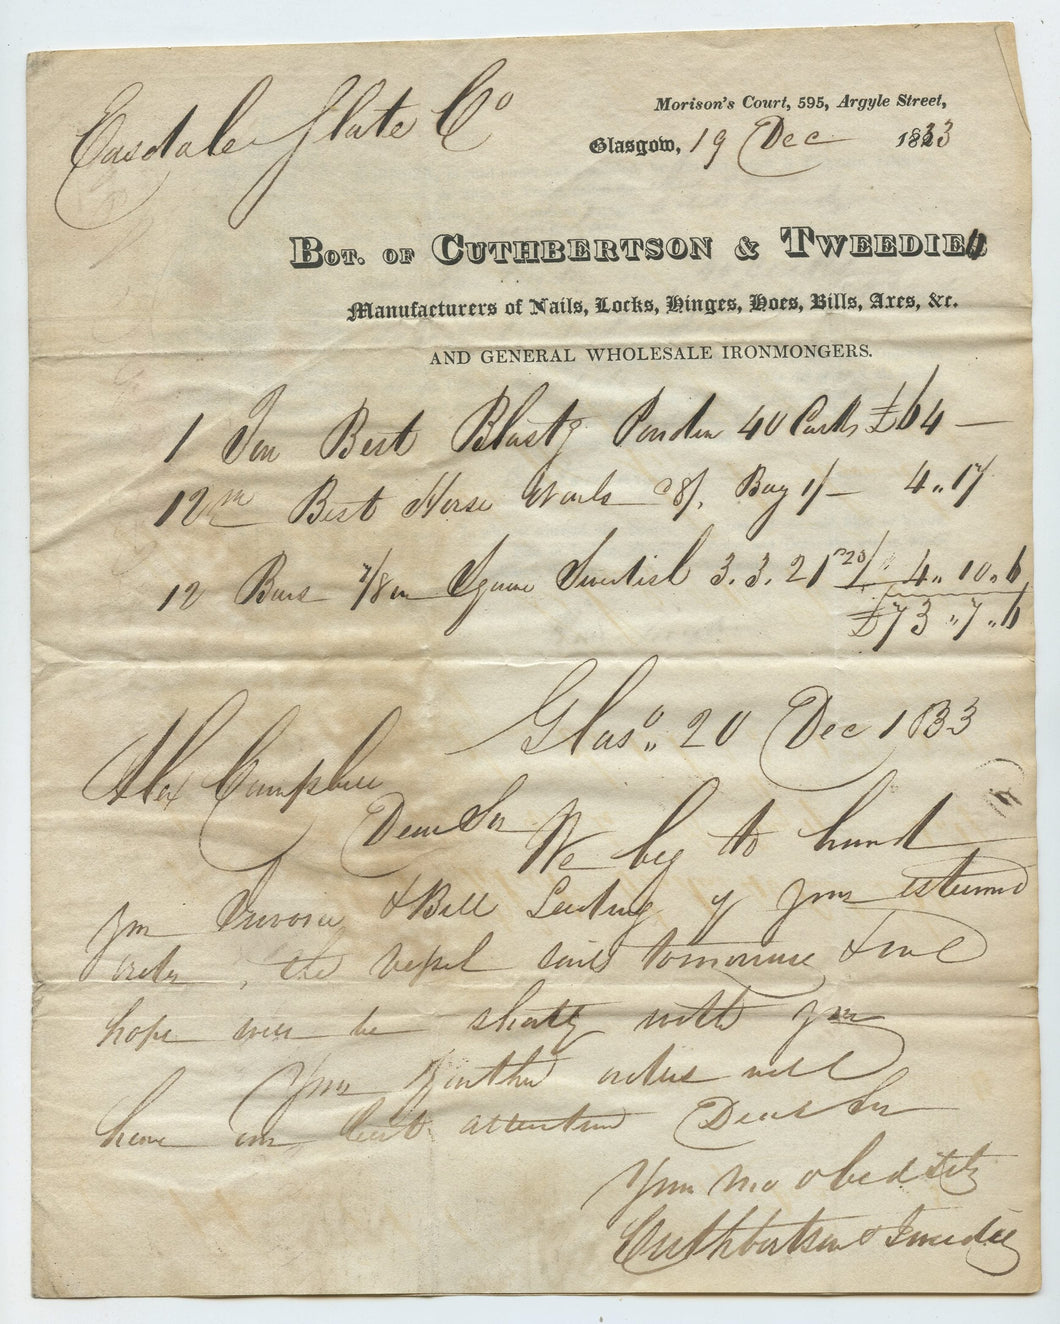 Easdale Slate Co
Morison's Court, 595, Argyle Street,
Glasgow, 19 Dec 1833
Bot. of Cuthbertson & Tweedie
Manufacturers of Nails, Locks, Hinges, Hoes, Bills, Axes, &c.
AND GENERAL WHOLESALE IRONMONGERS.
1 Ton Best Blastg Powder 40 Casks £64 —
12m Best Horse Nails @ 8/. Bag 1/- 4.. 17
12 Bars 7/8 in Square Swedish 3. 3. 21 @ 20/ 4.. 10.. 6
£73..7..6
Glaso.. 20 Dec 1833
Alex Campbell
Dear Sir We beg to hand
you Invoice & Bill Lading of your esteemed
order, the vessel sails tomorrow & we
hope will be shortly with you
Your further orders will
have our best attention Dear Sir
Your mo obed Sts
Cuthbertson & Tweedie